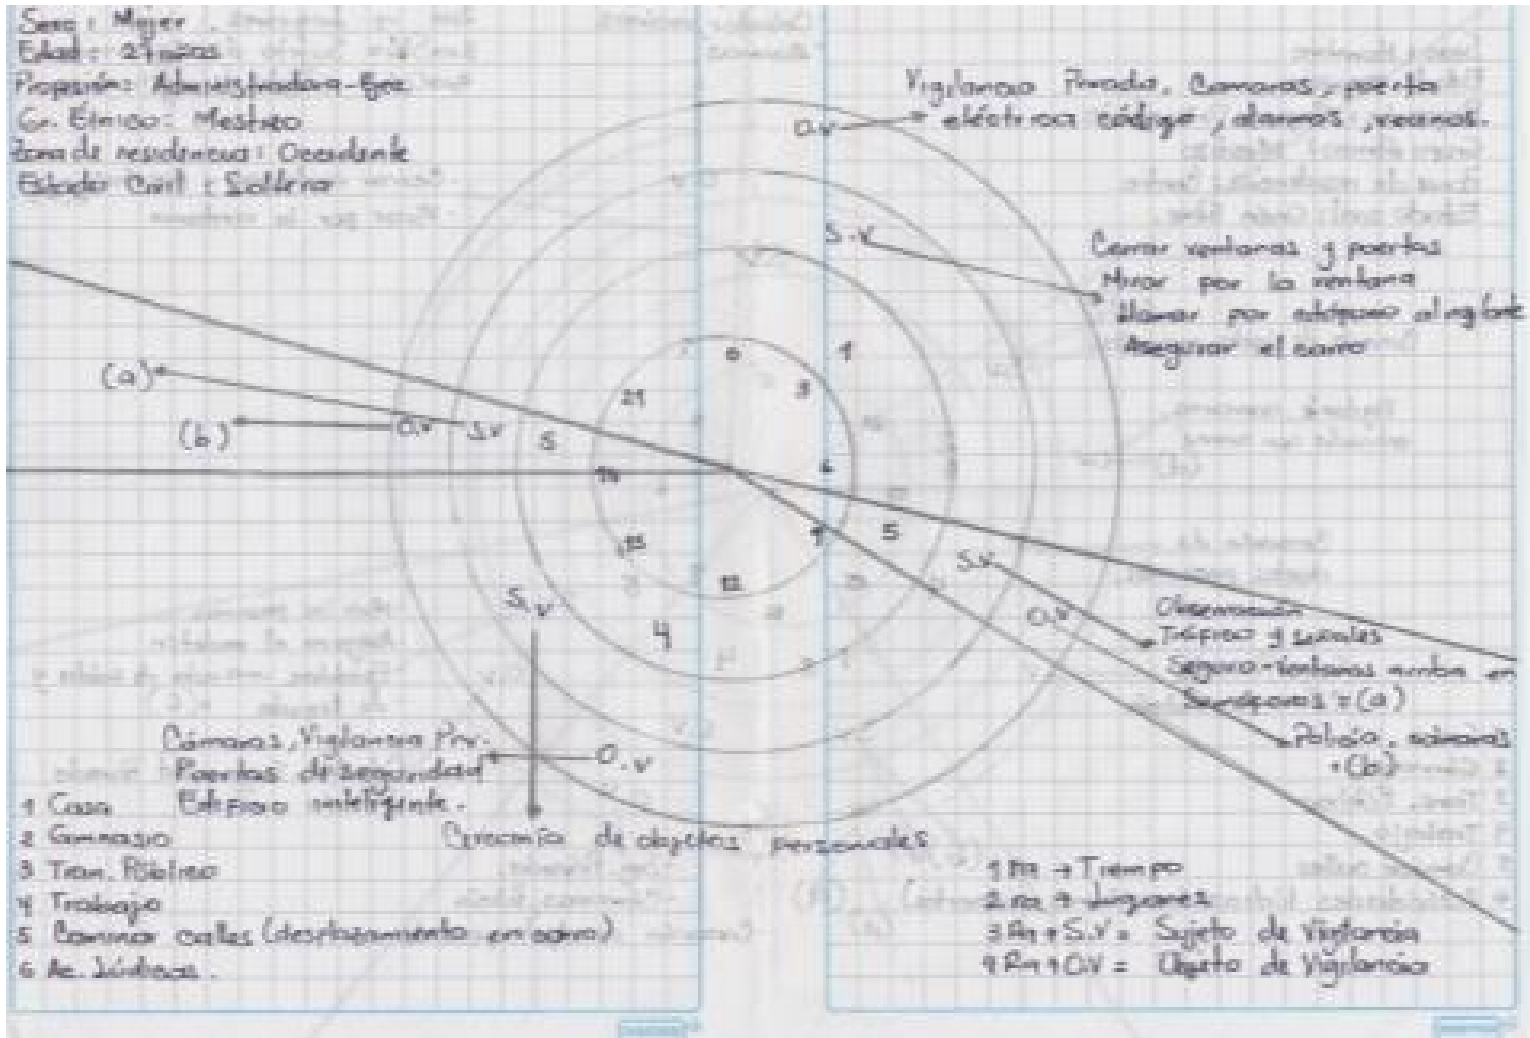 Sexo: Mujer.
Edad: 27 años
Profesión: Administradora-Eje
Gr. Étnico: Mestizo
Zona de residencia: Occidente
Estado Civil: Soltera
Vigilancia Privada, Camaras, puerta
O.V eléctrica código, alarmas, vecinos.
S.V
Cerrar ventanas y puertas
Mirar por la ventana
llamar por
Asegurar el carro
0
1
3
21
(a)
(b)
O.V S.V 5
18
6
9
5
15
12
S.V
O.V
Observación
Tráfico y señales
Seguro-Ventanas arriba en
Semáforos + (a)
Policía, cámaras
+(b)
S.V
4
Cámaras, Vigilancia Prv.
Puertas de seguridad
O.V
Edificio inteligente.
Cercanía de objetos personales
1 Casa
2 Gimnasio
3 Tran. Público
4 Trabajo
5 Caminar calles (desplazamiento en carro)
6 Ac. Lúdicas.
1 Ra → Tiempo
2 ra → Lugares
3 Ra → S.V = Sujeto de Vigilancia
4 Ra → O.V = Objeto de Vigilancia